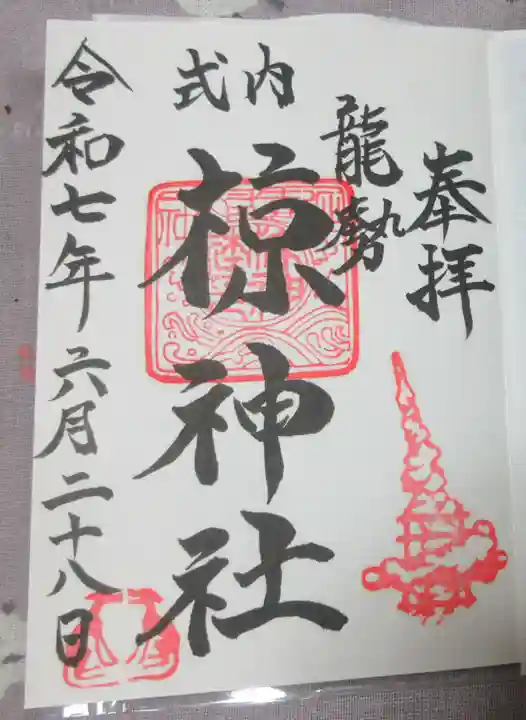 奉拝
龍勢
内式
椋神社
令和七年六月二十八日